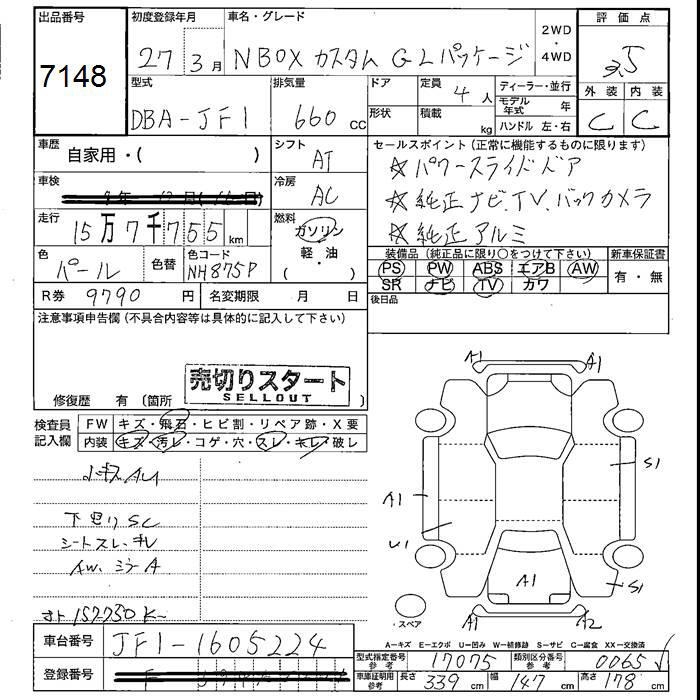 出品番号
7148
初度登録年月
27 3月
車名・グレード
NBOX カスタム G Lパッケージ
2WD
・
4WD
評価点
3.5
外装 内装
C C
型式
DBA-JF1
排気量
660 cc
ドア
形状
定員 4人
積載 kg
ディーラー・並行
モデル年式 年
ハンドル 左・右
車歴
自家用・( )
シフト
AT
車検
冷房
AC
走行
15万7千755km
燃料
ガソリン
軽・油
( )
色
パール
色替
色コード
NH875P
R券 9790 円
名変期限 月 日
セールスポイント(正常に機能するものに限ります)
☆ パワースライドドア
☆ 純正ナビ、TV、バックカメラ
☆ 純正アルミ
装備品(純正品に限り〇をつけて下さい)
新車保証書
PS PW ABS エアB AW
SR ナビ TV カワ
有・無
後日品
注意事項申告欄(不具合内容等は具体的に記入して下さい)
売切りスタート
SELLOUT
修復歴 有(箇所 )
検査員記入欄
FW キズ・飛石・ヒビ割・リペア跡・X要
内装 キズ・汚レ・コゲ・穴・スレ・キレ・破レ
小キズ AU
下廻り SC
シートスレ・キレ
AW、ミラーA
A1 A1
S1
A1
U1
A1
S1
A1 A2
・スペア
A-キズ E-エクボ U-凹み W-補修跡 S-サビ C-腐食 XX-交換済
車台番号
JF1-1605224
登録番号
型式指定番号 参考 17075
類別区分番号 参考 0065
車庫証明用 参考 長さ 339cm 幅 147cm 高さ 178cm